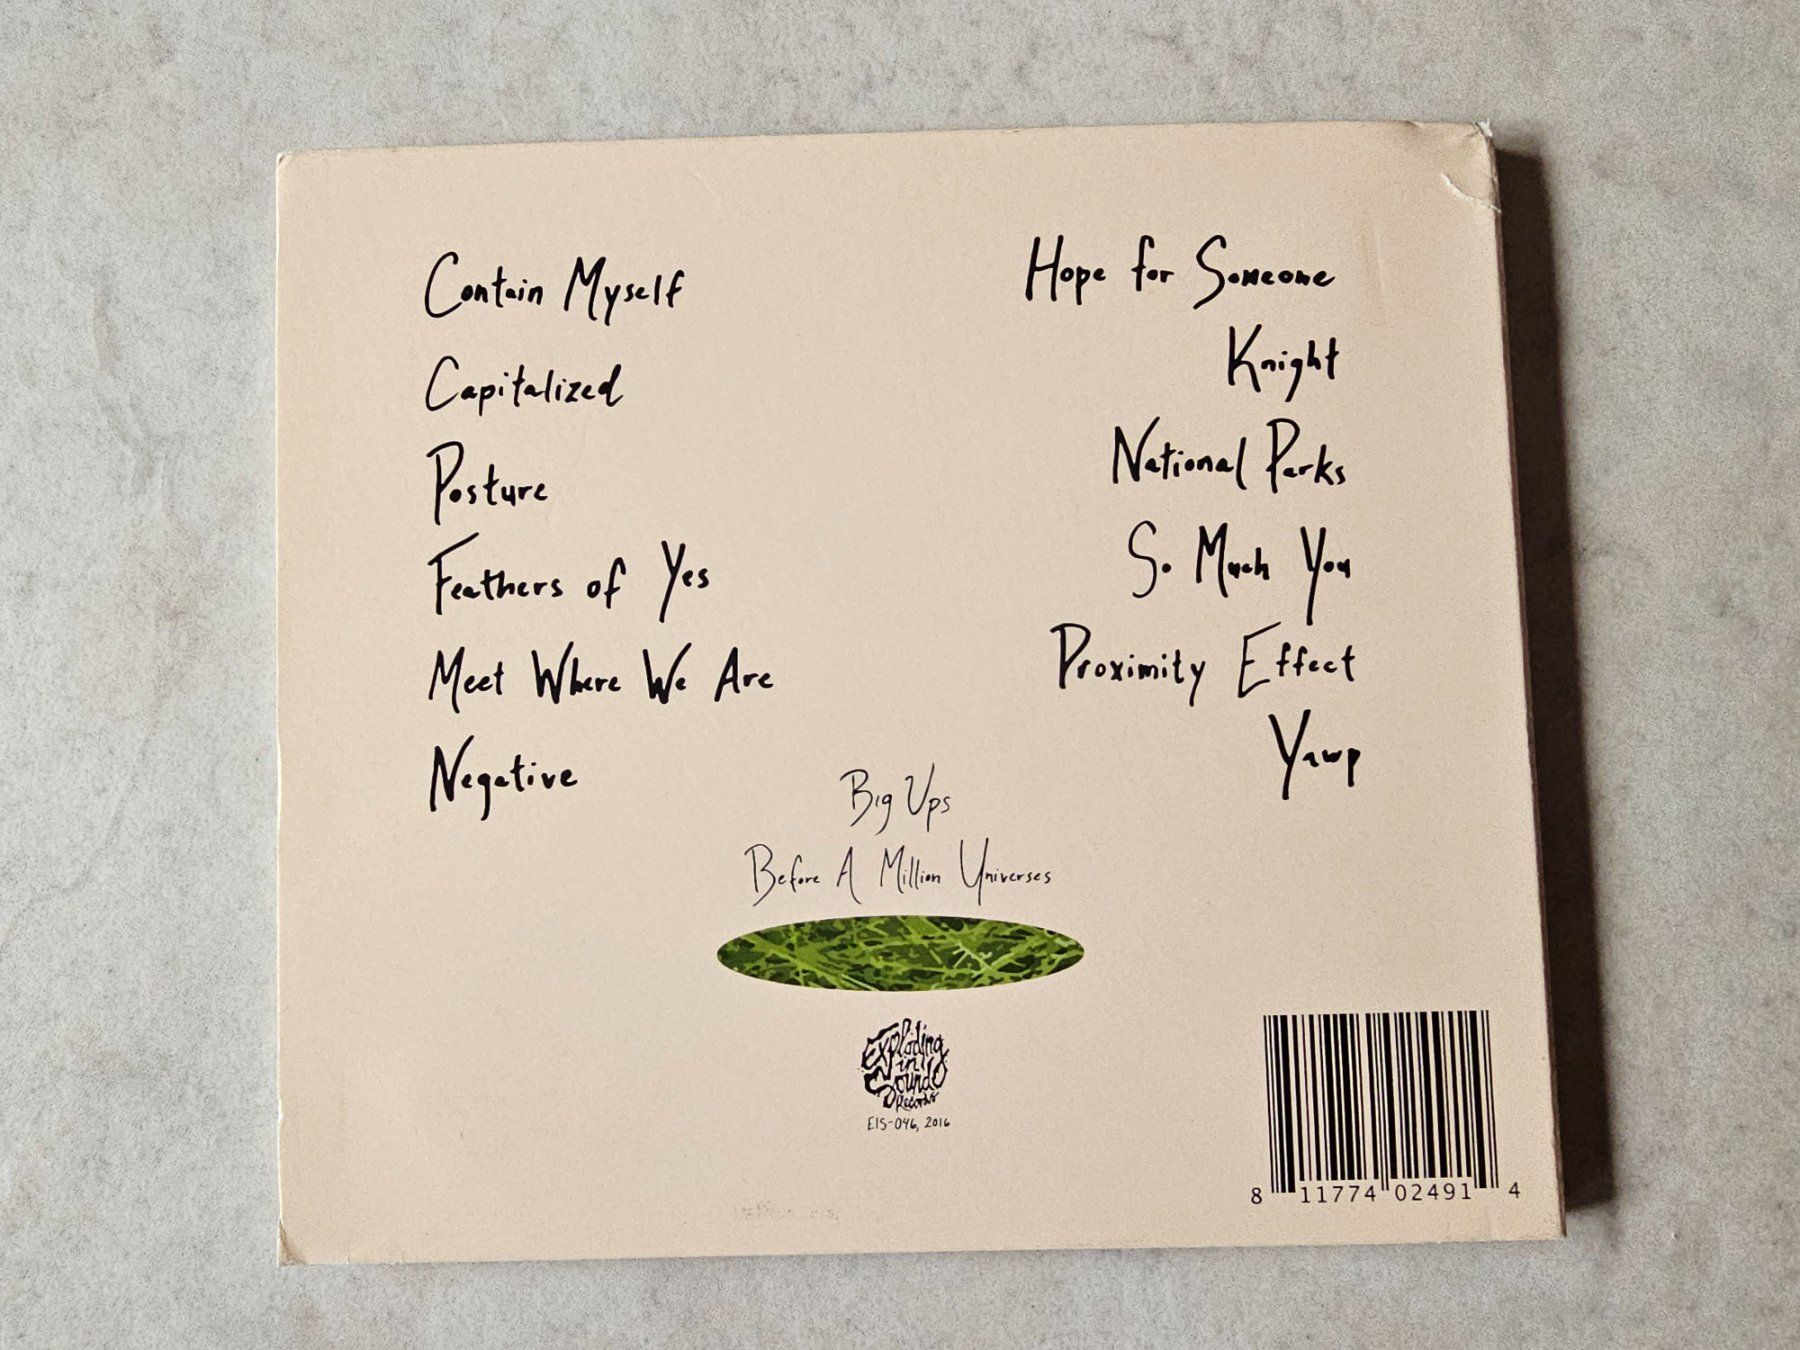 Contain Myself
Capitalized
Posture
Feathers of Yes
Meet Where We Are
Negative
Hope for Someone
Knight
National Parks
So Much You
Proximity Effect
Yawp
Big Ups
Before A Million Universes
Exploding
in
Sound
Records
EIS-046, 2016
8 11774 02491 4